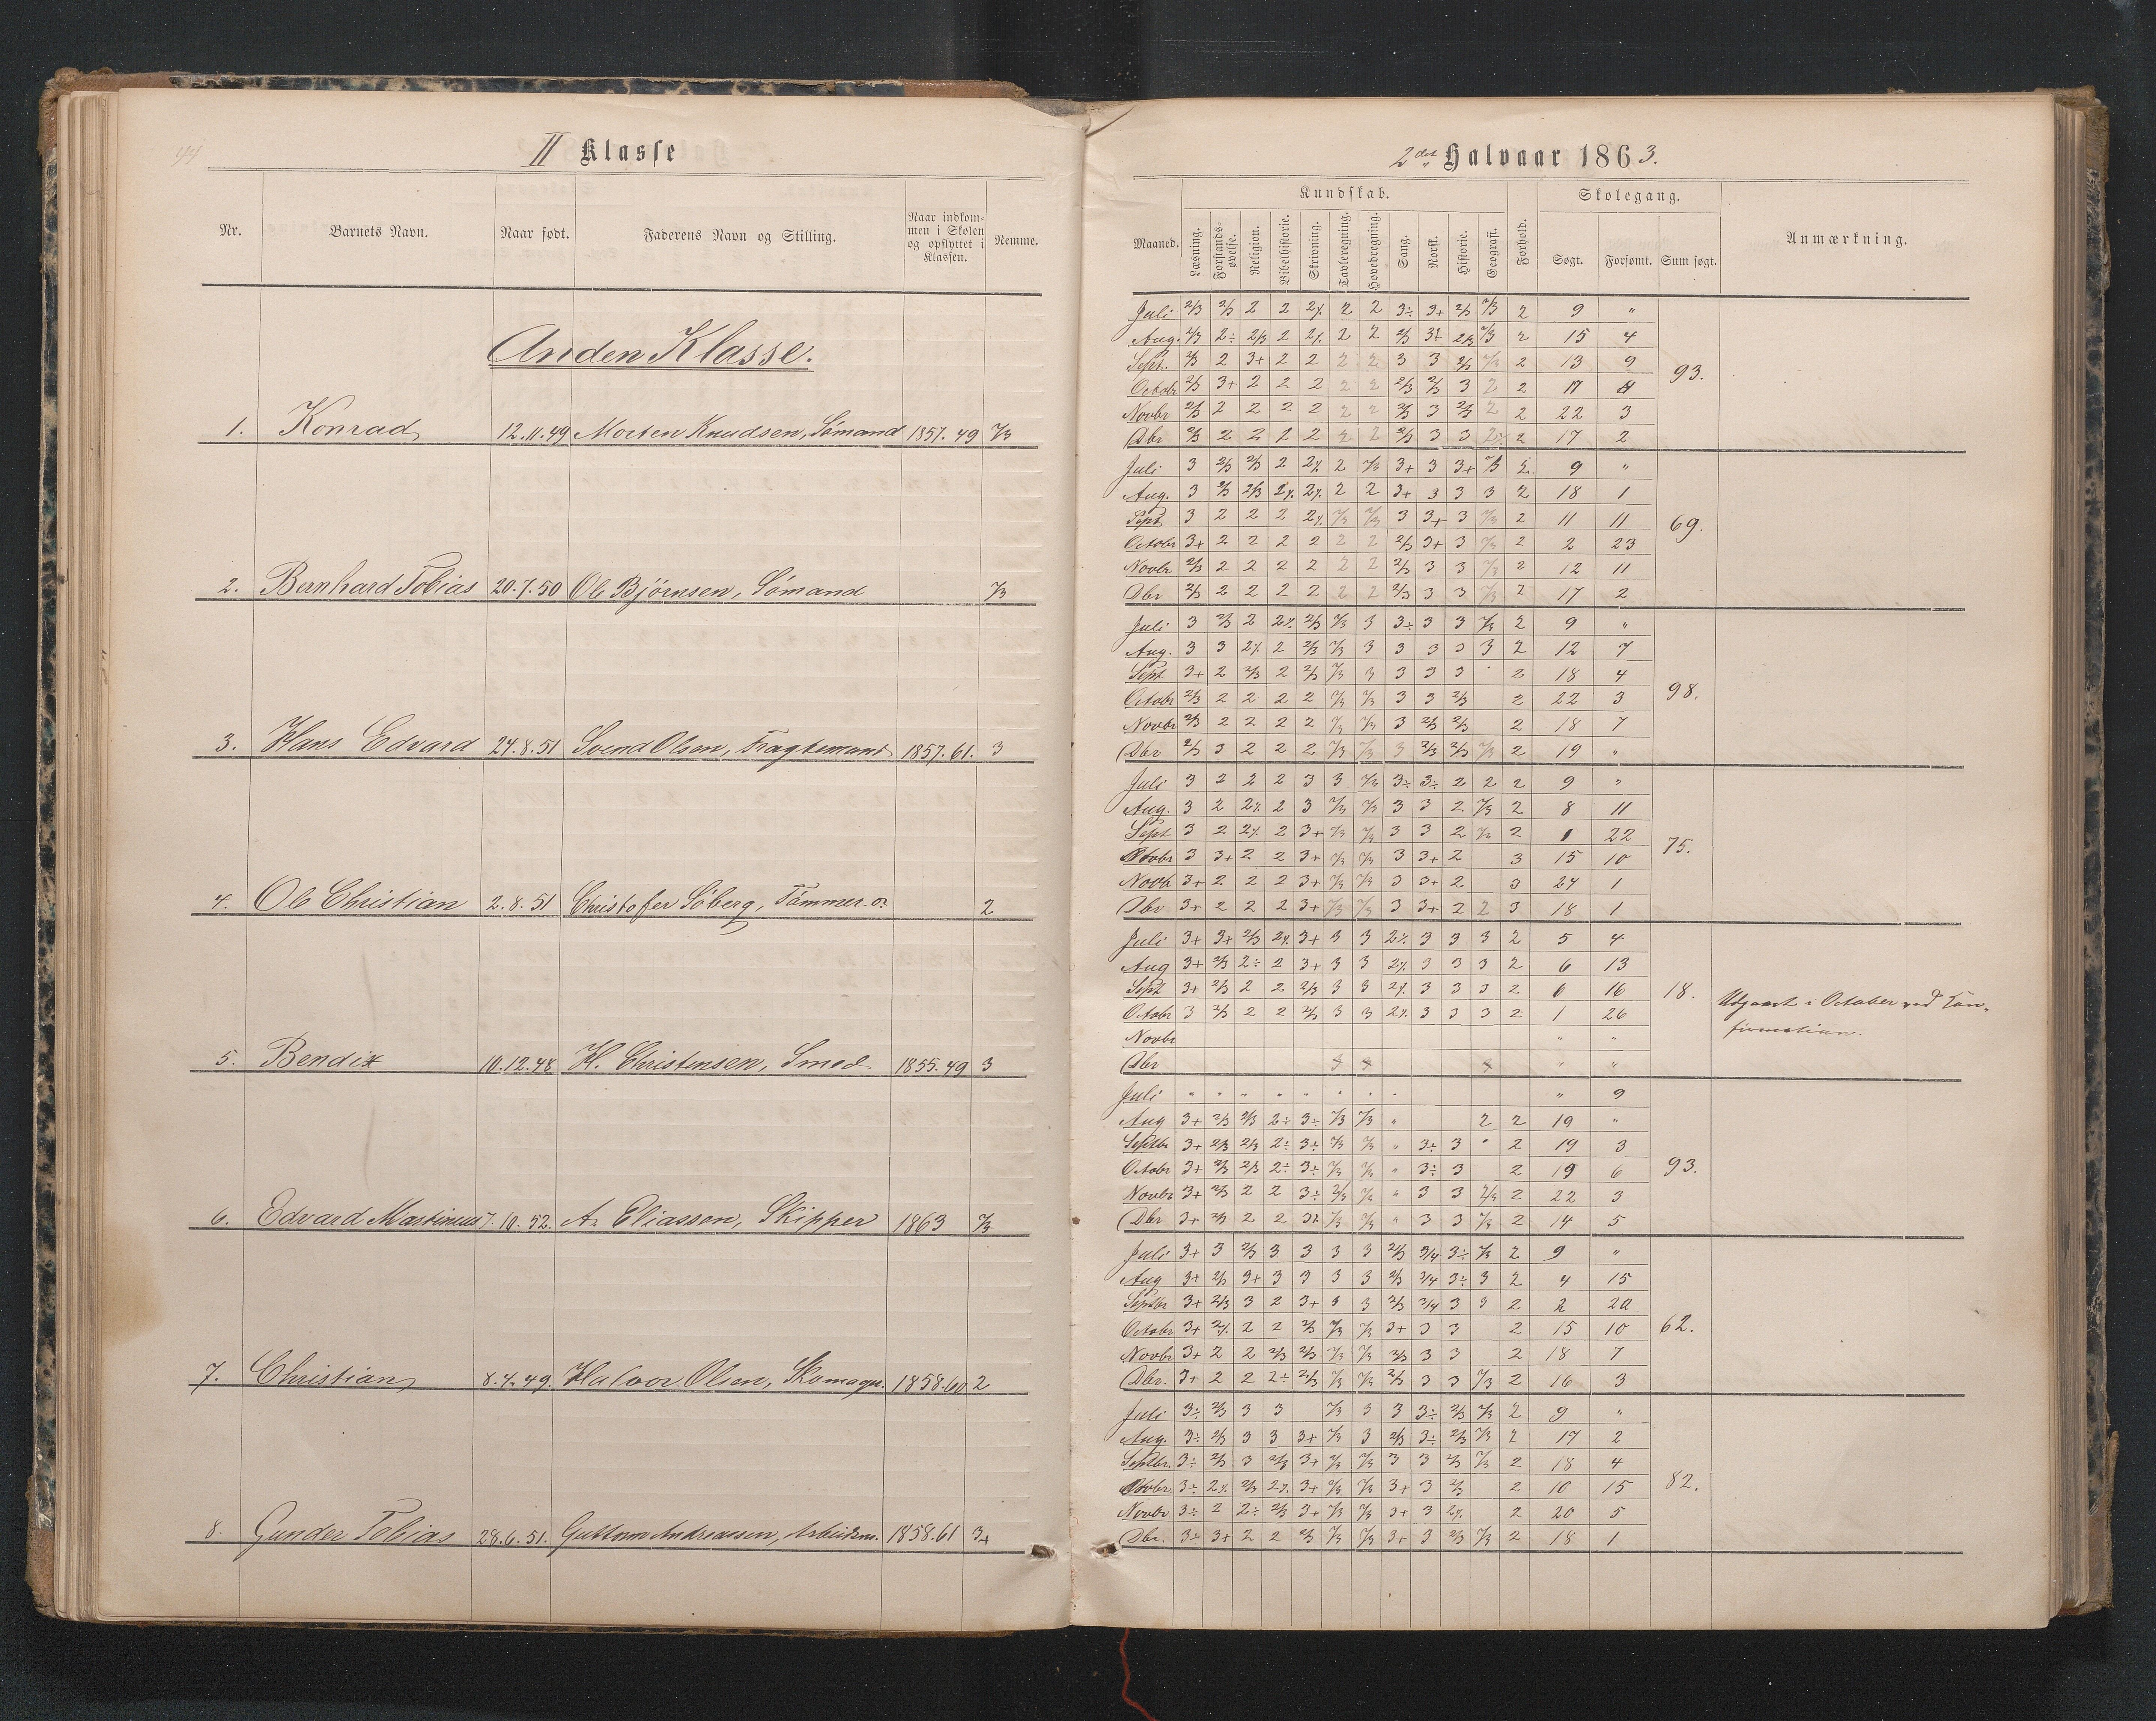 44
II Klasse
Nr. Barnets Navn. Naar født. Faderens Navn og Stilling. Naar indkom- Nemme.
men i Skolen
og opflyttet i
Klassen.
Anden Klasse.
1. Konrad 12.11.49 Morten Knudsen, Sømand 1857.49 2/3
2. Bernhard Tobias 20.7.50 Ole Bjørnsen, Sømand 2/3
3. Hans Edvard 24.8.51 Svend Olsen, Fragtemand 1857.61. 3
4. Ole Christian 2.8.51 Christofer Söberg, Tømmer 2
5. Bendix 10.12.48 H. Christensen, Smed 1855.49 3
6. Edvard Martinius 7.10.52. A. Eliassen, Skipper 1863 2/3
7. Christian 8.4.49. Halvor Olsen, Skomager. 1858.60 2
8. Gunder Tobias 28.6.51. Guttorm Andreassen, Arbeidsm. 1858.61 3+
2det Halvaar 1863.
Maaned. Kundskab. Forhold. Skolegang. Anmærkning.
Læsning. Forstands-øvelse. Religion. Bibelhistorie. Skrivning. Tavleregning. Hovedregning. Sang. Norsk. Historie. Geografi. Søgt. Forsømt. Sum søgt.
Juli 2/3 2/3 2 2 2% 2 2 3÷ 3+ 2/3 2/3 2 9 "
Aug. 2/3 2÷ 2/3 2 2% 2 2 2/3 3+ 2/3 2/3 2 15 4
Sept. 2/3 2 3+ 2 2 2 2 3 3 2/3 2/3 2 13 9 93.
Octobr 2/3 3+ 2 2 2 2 2 2/3 2/3 3 2 2 17
Novbr 2/3 2 2 2 2 2 2 2/3 3 2/3 2 2 22 3
Dbr 2/3 2 2 2 2 2 2 2/3 3 3 2% 2 17 2
Juli 3 2/3 2/3 2 2% 2 2/3 3+ 3 3+ 2/3 2 9 "
Aug. 3 2/3 2/3 2% 2% 2 2 3+ 3 3 3 2 18 1
Sept. 3 2 2 2 2% 2/3 2/3 3 3+ 3 2/3 2 11 11 69.
Octobr 3+ 2 2 2 2 2 2 2/3 3+ 3 2/3 2 2 23
Novbr 2/3 2 2 2 2 2 2 2/3 3 3 2/3 2 12 11
Dbr 2/3 2 2 2 2 2 2 2/3 3 3 2/3 2 17 2
Juli 3 2/3 2 2% 2/3 2/3 3 3÷ 3 3 2/3 2 9 "
Aug. 3 3 2% 2 2/3 2/3 3 3 3 3 3 2 12 7
Sept 3+ 2 2/3 2 2/3 2/3 3 3 3 3 " 2 18 4
Octobr 2/3 2 2 2 2 2/3 2/3 3 3 2/3 2 22 3 98.
Novbr 2/3 2 2 2 2 2/3 2/3 3 2/3 2/3 2 18 7
Dbr 2/3 3 2 2 2 2/3 2/3 3 2/3 2/3 2/3 2 19 "
Juli 3 2 2 2 3 3 2/3 3÷ 3÷ 2 2 2 9 "
Aug. 3 2 2% 2 3 2/3 2/3 3 3 2 2/3 2 8 11
Sept 3 2 2% 2 3+ 2/3 2/3 3 3 2 2/3 2 1 22
Octobr 3 3+ 2 2 3+ 2/3 2/3 3 3+ 2 3 15 10 75.
Novbr 3+ 2 2 2 3+ 2/3 2/3 3 3+ 2 3 24 1
Dbr 3+ 2 2 2 3+ 2/3 2/3 3 3+ 2 2 3 18 1
Juli 3+ 3+ 2/3 2% 3+ 3 3 2% 3 3 3 2 5 4
Aug 3+ 2/3 2÷ 2 3+ 3 3 2% 3 3 3 2 6 13
Sept 3+ 2/3 2 2 2/3 3 3 2% 3 3 3 2 6 16 18. Udgaaet i October ved Con-
Octobr 3 2/3 2 2 2/3 3 3 2% 3 3 3 2 1 26
firmation.
Novbr " "
Dbr " "
Juli " " " " " " " " " 9
Aug 3+ 2/3 2/3 2÷ 3÷ 2/3 2/3 " 2 2 19 "
Septbr 3+ 2/3 2/3 2÷ 3÷ 2/3 2/3 " 3÷ 3 " 2 19 3
Octobr 3+ 2/3 2/3 2÷ 3÷ 2/3 2/3 " 3÷ 3 2 19 6 93.
Novbr 3+ 2/3 2 2 3÷ 2/3 2/3 " 3 3 2/3 2 22 3
Dbr 3+ 2/3 2 2 3% 2/3 2/3 " 3 3 2/3 2 14 5
Juli 3+ 3 2/3 3 3 3 3 2/3 3/4 3÷ 2/3 2 9 "
Aug 3+ 2/3 3+ 3 3 3 3 2/3 3/4 3÷ 3 2 4 15
Septbr 3+ 2/3 3 2 3+ 3 3 2/3 3/4 3 3 2 2 20
Octobr 3+ 2% 2 2 2/3 2/3 2/3 3+ 3 3 2 15 10 62.
Novbr 3+ 2 2 2/3 2/3 2/3 2/3 2/3 3 3 2 18 7
Dbr. 3+ 2 2 2÷ 2/3 2/3 2/3 2/3 3 3 2/3 2 16 3
Juli 3÷ 2/3 3 3 2/3 3 3 3÷ 2/3 2/3 2 9 "
Aug. 3÷ 2/3 3 3 3+ 2/3 3 2/3 3÷ 2/3 2/3 2 17 2
Septbr. 3÷ 2/3 3 2/3 3+ 2/3 2/3 3 3 2/3 2/3 2 18 4
Octobr. 3÷ 2% 2/3 2% 3+ 2/3 2/3 3+ 3 2/3 2 10 15 82.
Novbr 3÷ 2 2÷ 2/3 3+ 2/3 2/3 3+ 3 2% 2 20 5
Dbr. 3÷ 3+ 2 2 2/3 2/3 2/3 3+ 3 2/3 2/3 2 18 1